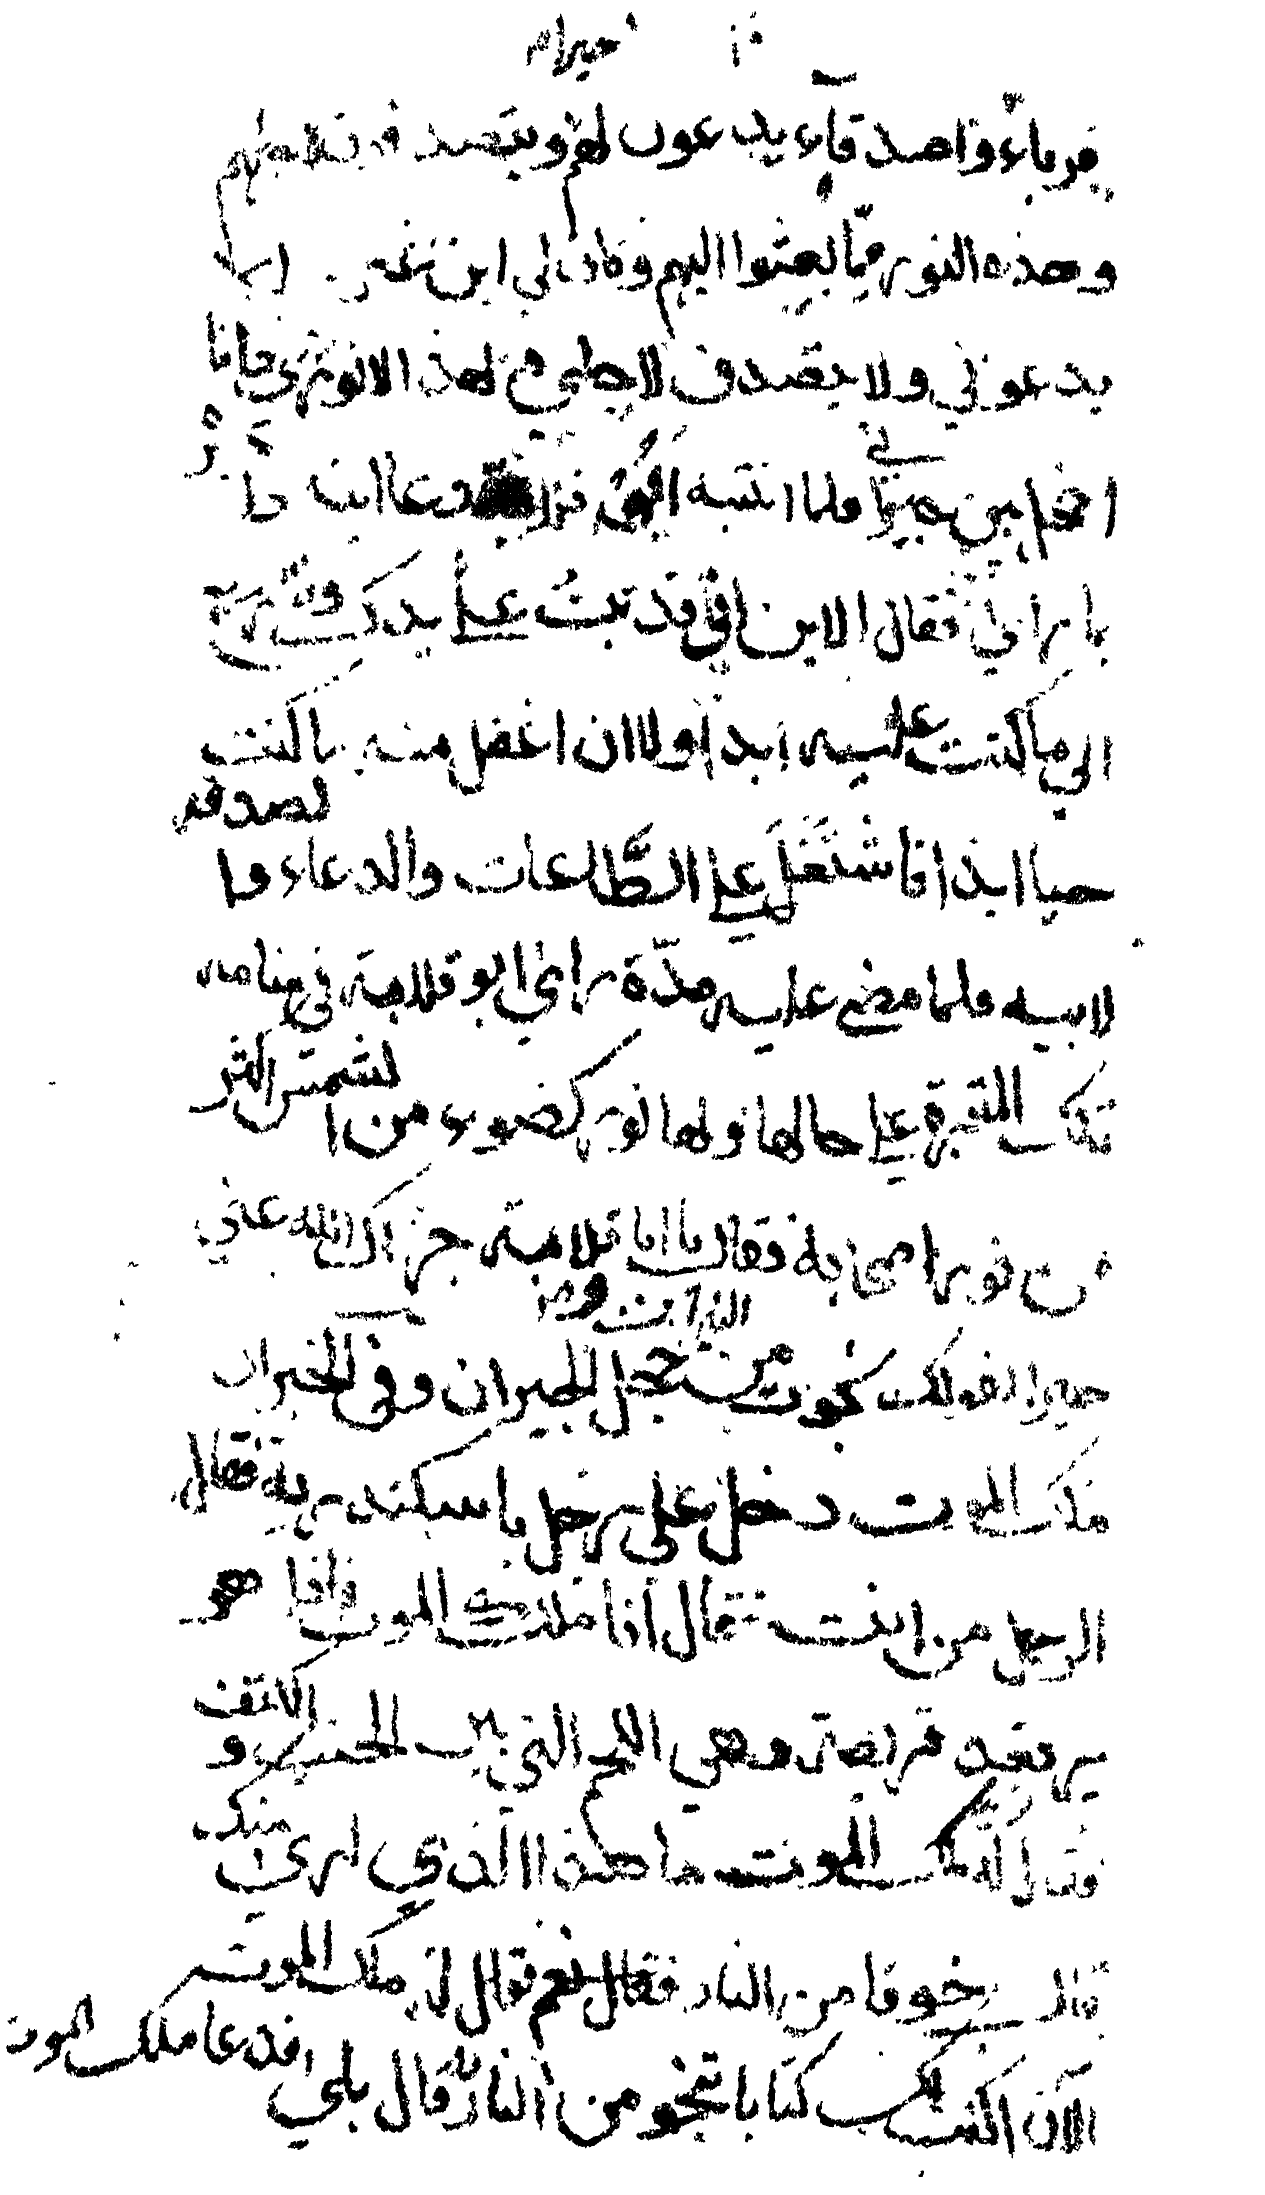 خيرام
قرباء واصدقاء يدعون لهم ويتصدقون لاجلهم
وهذه النور مما بعثوا اليهم وكان لي ابن غير
يدعو لي ولا يتصدق لاجلي فلهذا لا نور لي فانا
اخجل بين جيراني فلما انتبه ابو قلابة دعا ابنه
بما راي فقال الابن اني قد تبت علي يدك ولا ارجع
الي ما كنت عليه ابدا ولا ان اغفل منه ما كنت
حيا ابدا فاشتغل علي الطاعات والدعاء والصدقة
لابيه فلما مضي عليه مدة راي ابو قلابة في منامه
تلك المقبرة علي حالها ولها نور كضوء من الشمس اكثر
من نور اصحابه فقال يا ابا قلابة جزاك الله عني
خيرا بقولك نجوت من النيران ومن خجل الجيران وفي الخبر ان
ملك الموت دخل علي رجل باسكندرية فقال
الرجل من انت فقال انا ملك الموت فاذا هو
يرتعد فريصته وهي اللحم التي بين الجنب والكتف
فقال له ملك الموت ما هذا الذي اري منك
قال خوفا من النار فقال نعم فقال له ملك الموت
الآن اكتب لك كتابا تنجو من النار به قال بلي فدعا ملك الموت